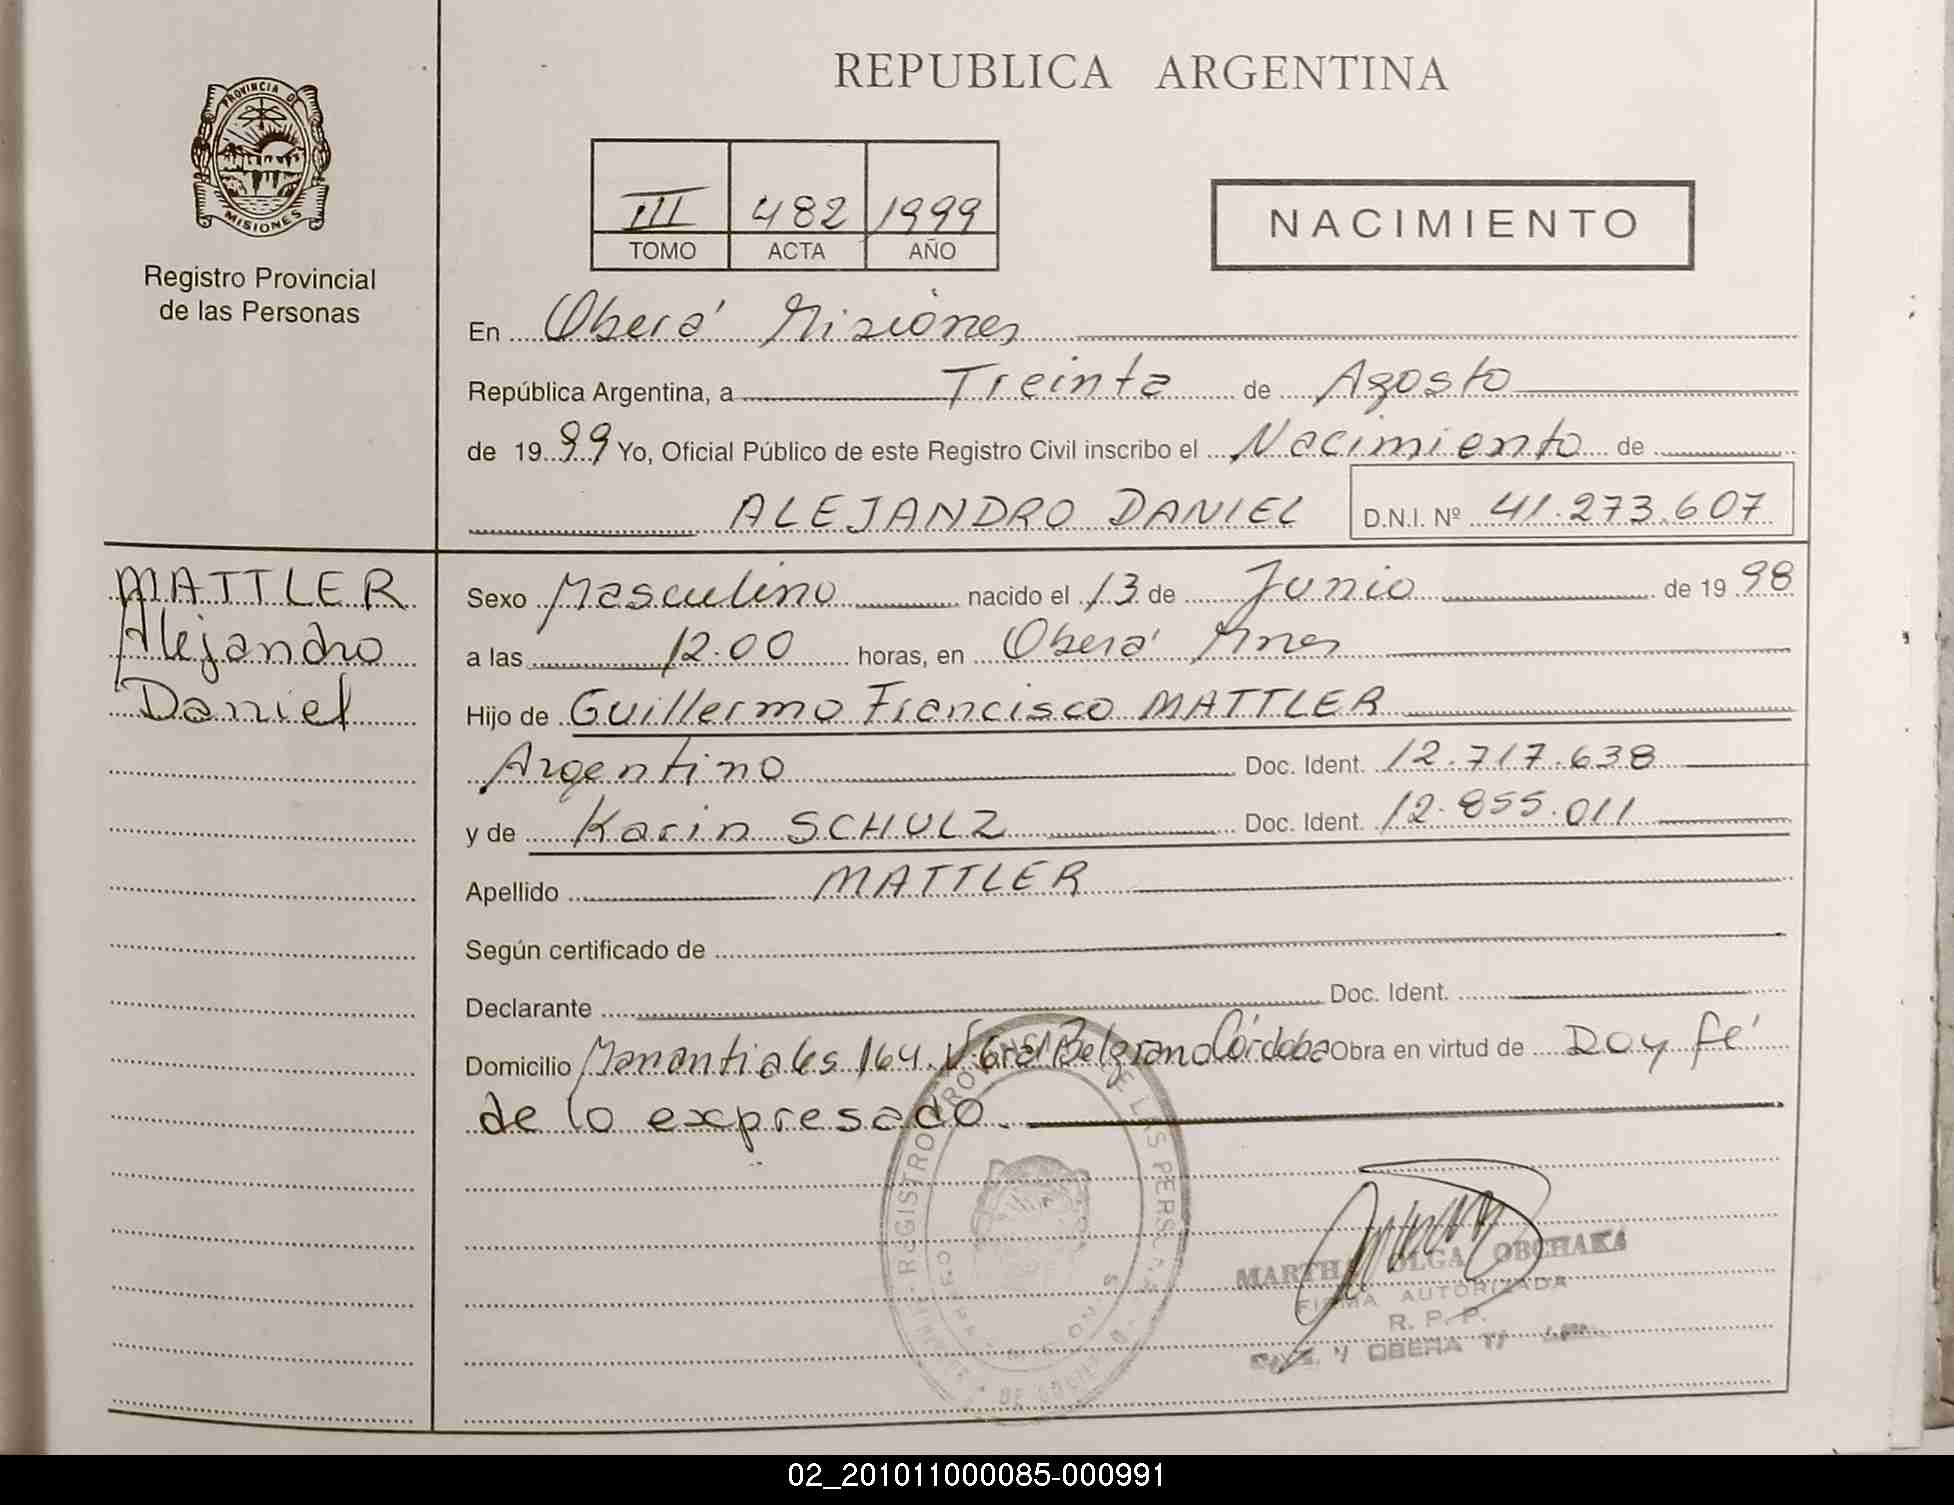 REPUBLICA ARGENTINA
PROVINCIA DE
MISIONES
Registro Provincial
de las Personas
III 482 1999
TOMO ACTA AÑO
NACIMIENTO
En Oberá Misiones
República Argentina, a Treinta de Agosto
de 1999 Yo, Oficial Público de este Registro Civil inscribo el Nacimiento de
ALEJANDRO DANIEL D.N.I. Nº 41.273.607
MATTLER
Alejandro
Daniel
Sexo Masculino nacido el 13 de Junio de 1998
a las 12.00 horas, en Oberá Mnes
Hijo de Guillermo Francisco MATTLER
Argentino Doc. Ident. 12.717.638
y de Karin SCHULZ Doc. Ident. 12.855.011
Apellido MATTLER
Según certificado de
Declarante Doc. Ident.
Domicilio Manantiales 164. V. Gral Belgrano Córdoba Obra en virtud de Doy fé
de lo expresado.
REGISTRO PROVINCIAL DE LAS PERSONAS
MARTHA OLGA OBCHAKA
FIRMA AUTORIZADA
R. P. P.
OBERA
02_201011000085-000991